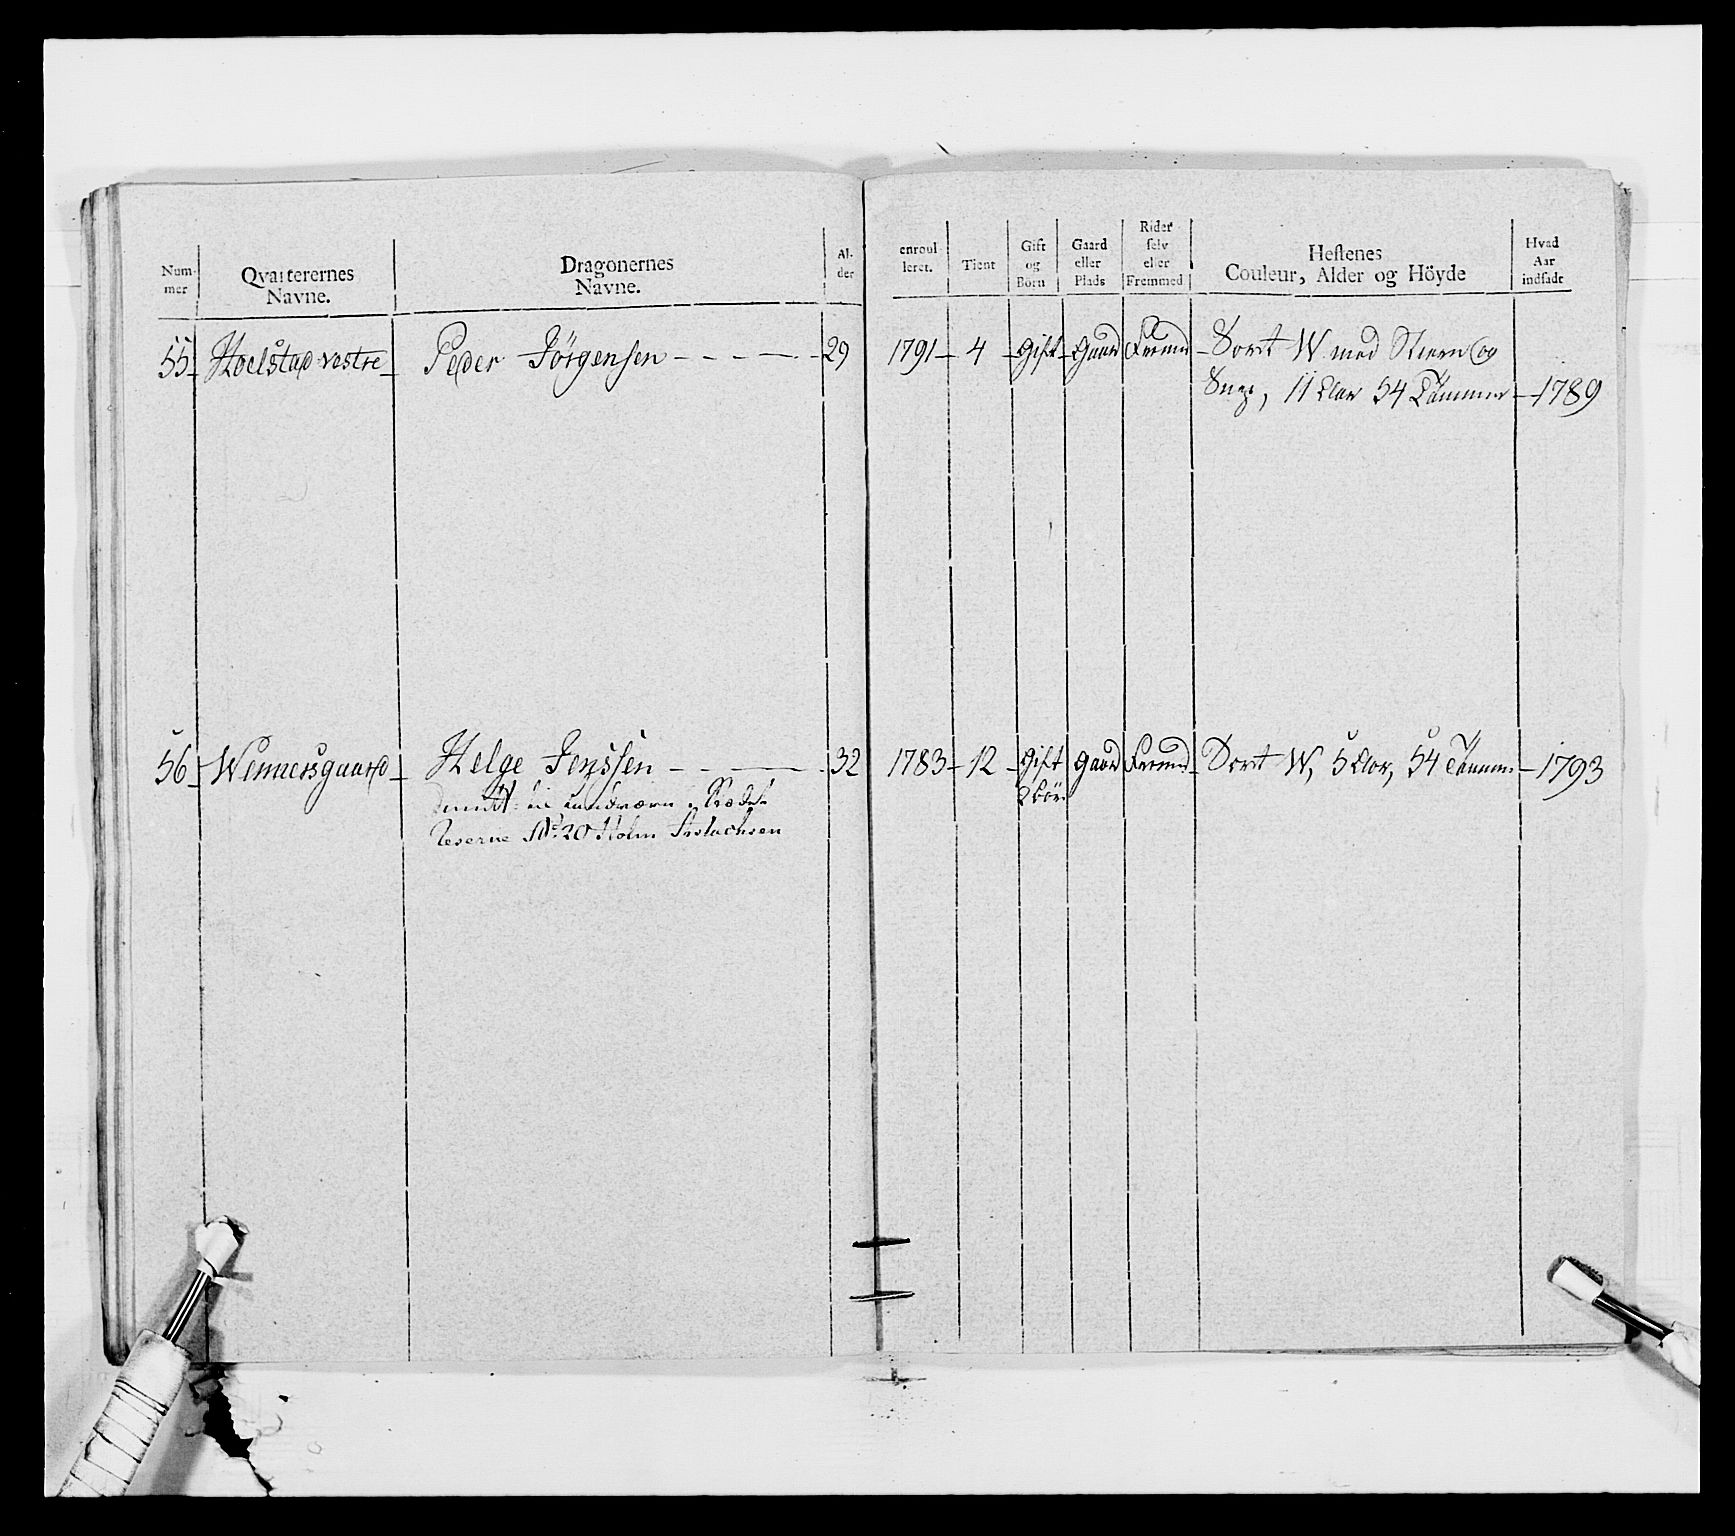 Num-
mer
Qvarterernes
Navne.
Dragonernes
Navne.
Al-
der
enroul
leret.
Tient
Gift
og
Börn
Gaard
eller
Plads
Rider
selv
eller
Fremmed
Hestenes
Couleur, Alder og Höyde
Hvad
Aar
indsadt
55 Hoelstad vestre Peder Jörgensen 29 1791 4 Gift Gaard Fremd Sort W med Stiern og
Snep, 11 Aar 54 Tommer 1789
56 Wennersgaard Helge Jenssen 32 1783 12 Gift Gaard Fremd Sort W, 5 Aar, 54 Tommer 1793
2 Börn
Reserve No 20 Holm